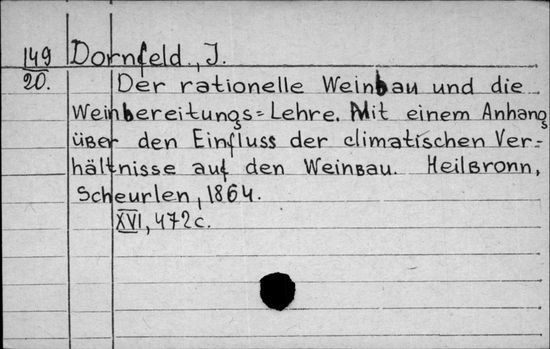 149 Dornfeld, J.
20. Der rationelle Weinbau und die
Weinbereitungs=Lehre. Mit einem Anhang
über den Einfluss der climatischen Ver=
hältnisse auf den Weinbau. Heilbronn,
Scheurlen, 1864.
XVI, 472c.